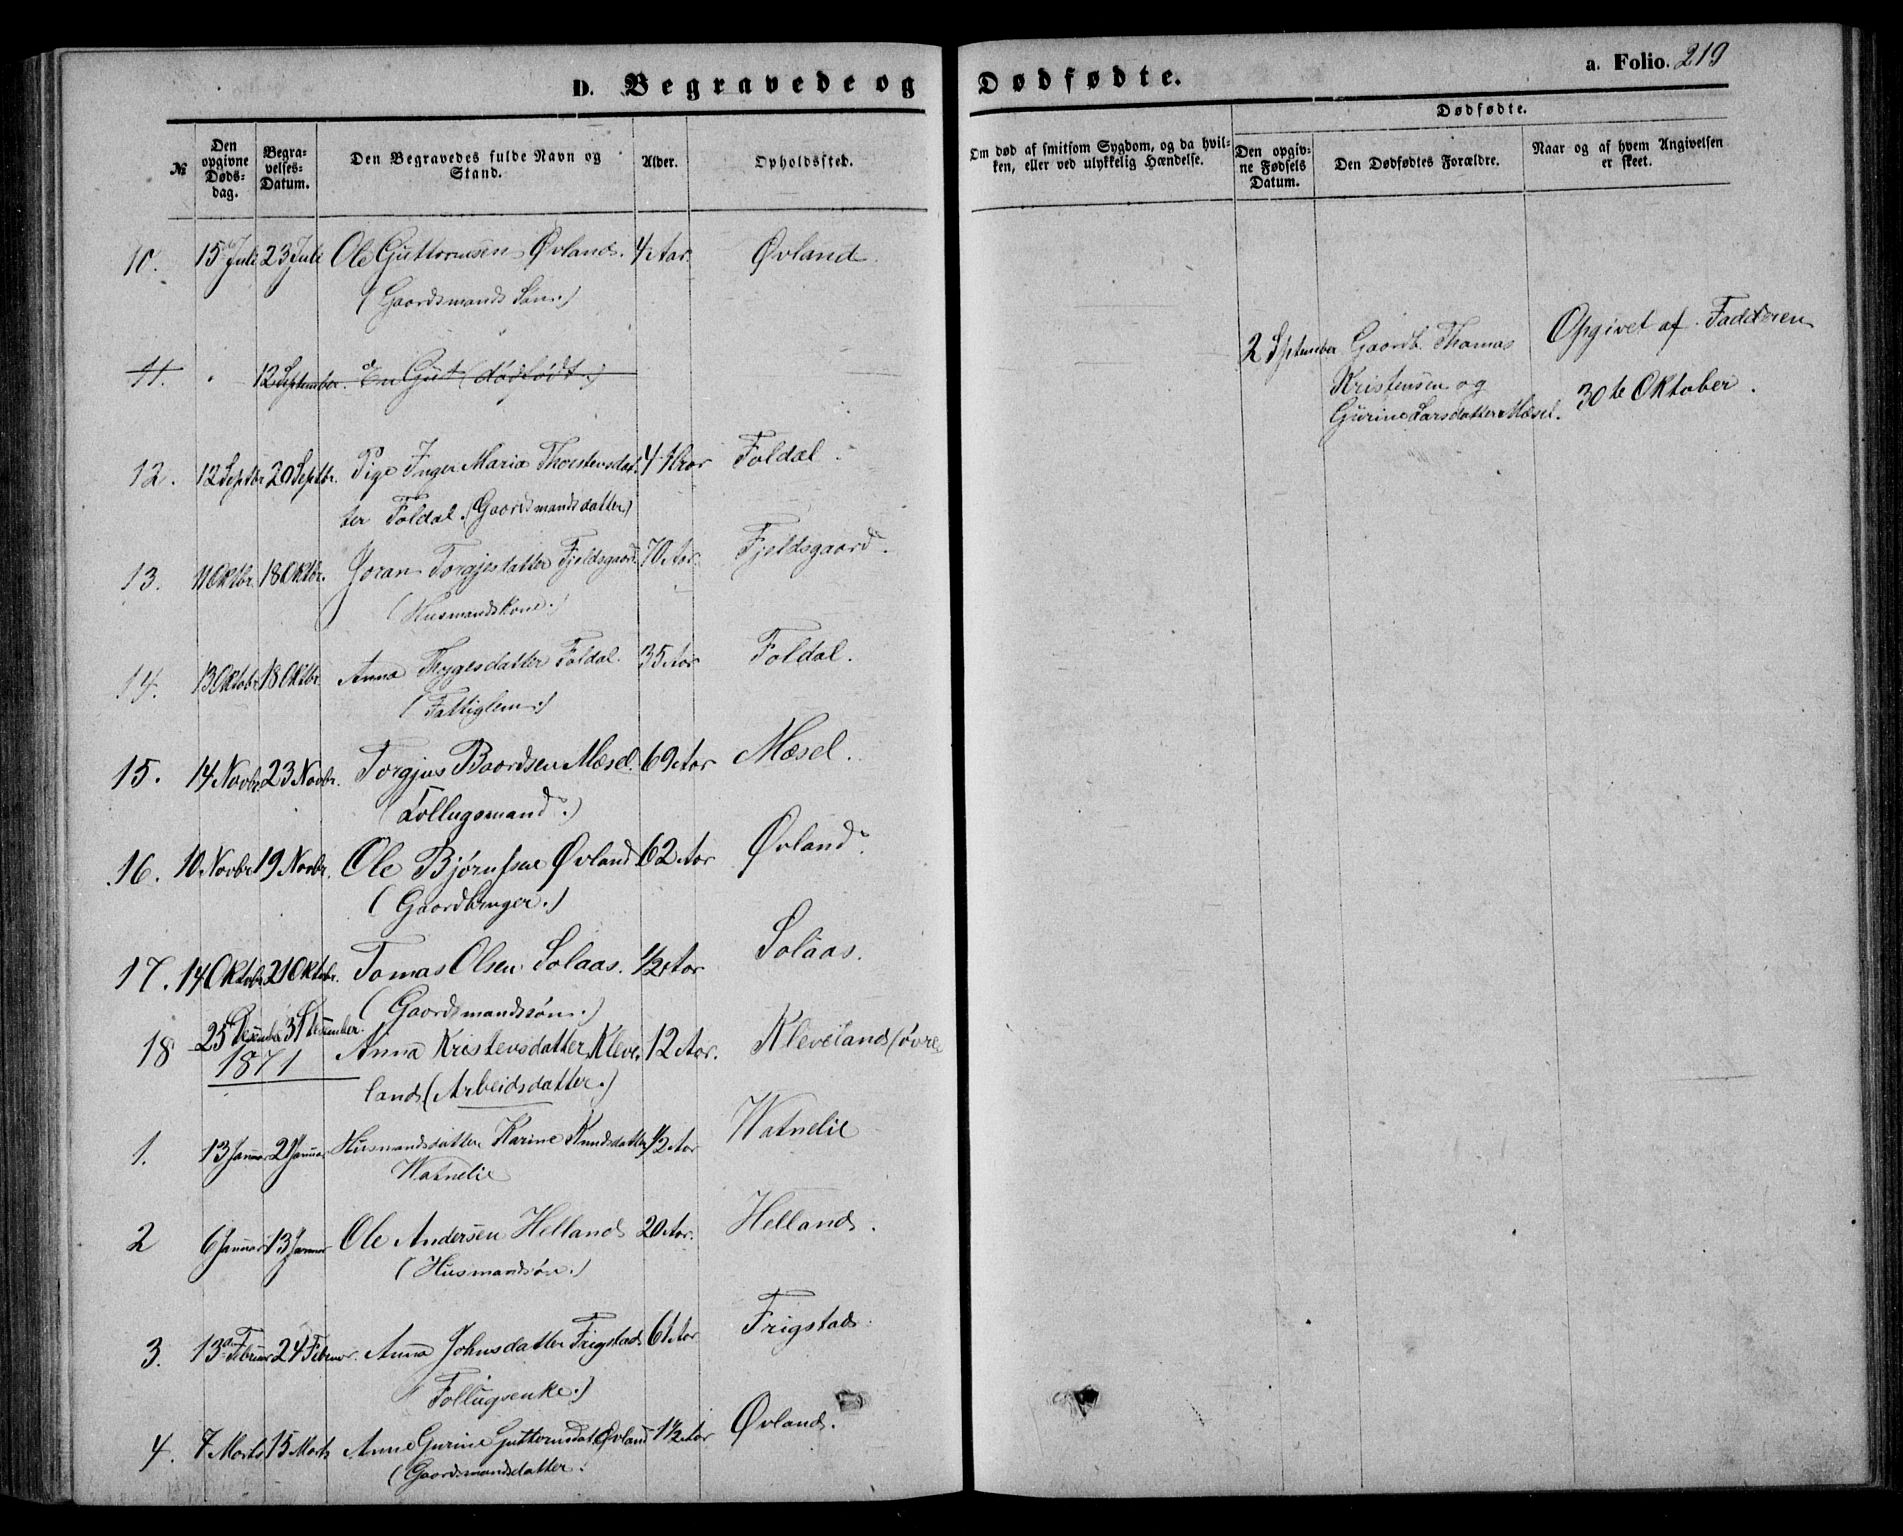 D. Begravede og Dødfødte.
a. Folio. 219
№
Den opgivne Døds-dag.
Begra-velses-Datum.
Den Begravedes fulde Navn og Stand.
Alder.
Opholdssted.
Om død af smitsom Sygdom, og da hvil-ken, eller ved ulykkelig Hændelse.
Dødfødte.
Den opgiv-ne Fødsels Datum.
Den Dødfødtes Forældre.
Naar og af hvem Angivelsen er skeet.
10. 15 Juli 23 Juli Ole Guttormsen Øvland. 4 Aar. Øvland.
(Gaardsmands Søn.)
11. 12 September. En Gut (dødfødt.)
2 September Gaardb. Thomas
Kristensen og
Gurine Larsdatter Mæsel.
Opgivet af Fadderen
30te Oktober.
12. 12 Septbr 20 Septbr. Pige Inger Maria Thorstensdat- 4 Aar Foldal.
ter Foldal. (Gaardsmandsdatter)
13. 11 Oktbr. 18 Oktbr. Joran Torgjesdatter Fjeldsgaard 70 Aar. Fjeldsgaard.
(Husmandskone.)
14. 13 Oktobr 18 Oktbr Anna Thygesdatter Foldal. 35 Aar Foldal.
(Fattiglem.)
15. 14 Novbr. 23 Novbr. Torgjus Baardsen Mæsel. 69 Aar Mæsel.
(Follugsmand.)
16. 10. Novbr 19 Novbr. Ole Bjørnsen Øvland 62 Aar Øvland.
(Gaardbruger.)
17. 14 Oktobr. 21 Oktobr. Tomas Olsen Solaas. 1/2 Aar Solaas.
(Gaardsmandssøn.)
18 25 Desember 31 Desember. Anna Kristensdatter Kleve- 12 Aar. Kleveland (øvre
land (Arbeidsdatter.)
1871
1. 13 Januar 21 Januar Husmandsdatter Karine Knudsdatter 1/2 Aar Watnelie
Watnelie
2 6 Januar 13 Januar Ole Andersen Helland 20 Aar. Helland.
(Husmandsøn.)
3. 13 Februar 24 Februar. Anna Johnsdatter Frigstad 61 Aar Frigstad.
(Follugsenke.)
4. 7 Marts 15 Marts Anne Gurine Guttormsdat. Øvland 1 1/2 Aar Øvland.
(Gaardsmandsdatter.